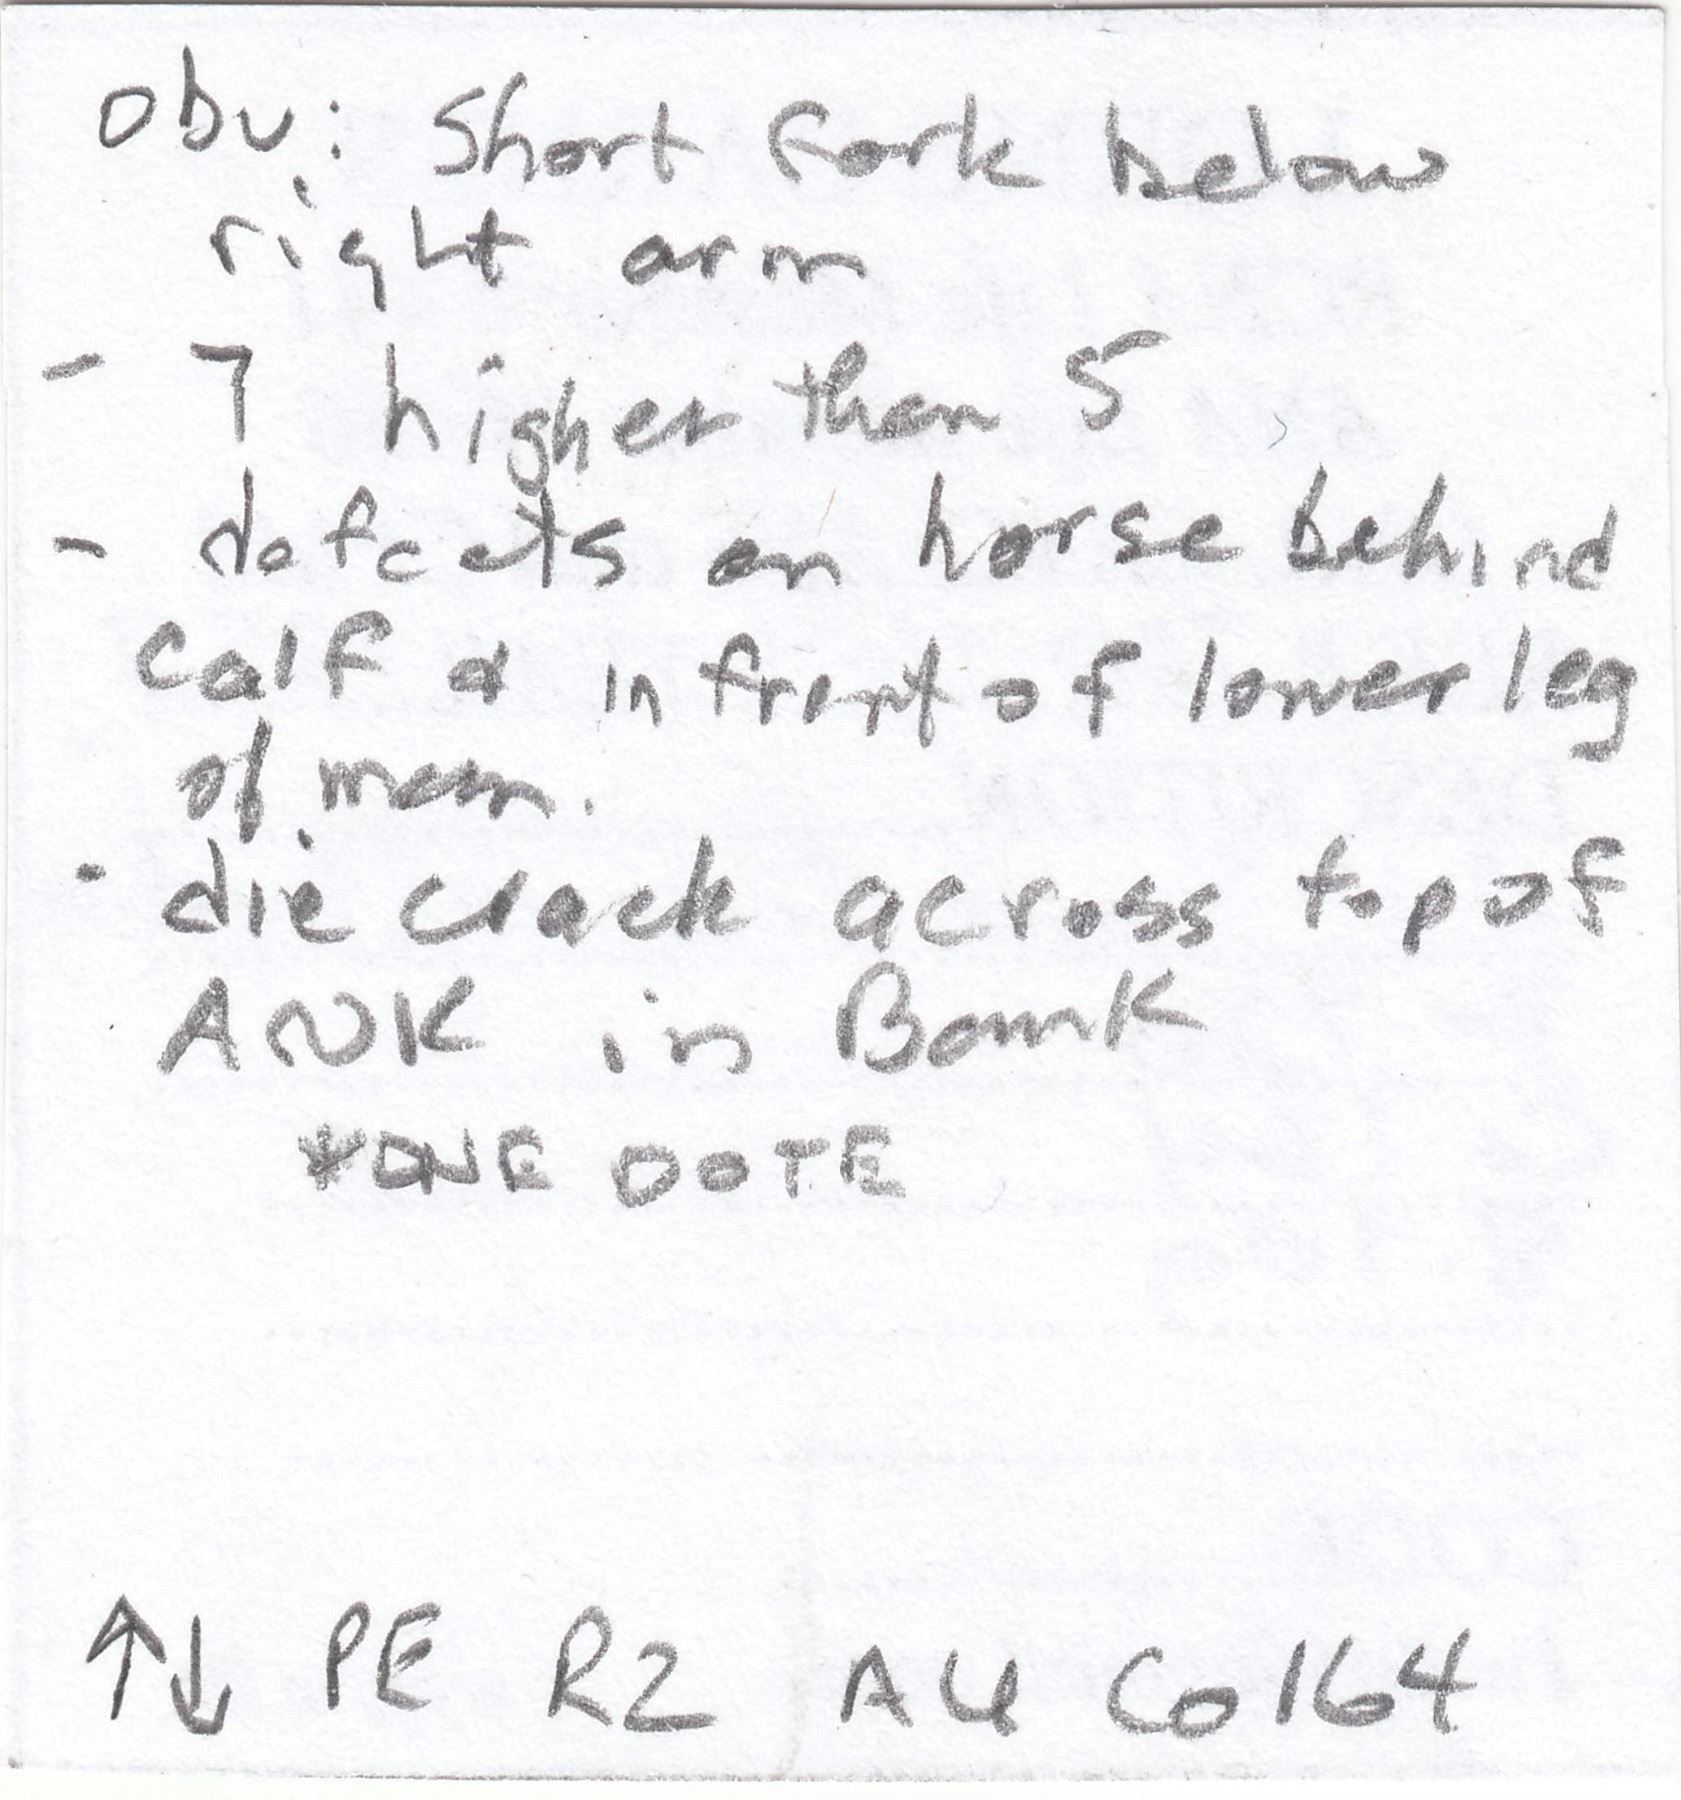 Obv: Short Fork below
right arm
- 7 higher than 5
- defects on horse behind
calf & in front of lower leg
of man.
- die crack across top of
ANK in Bank
*ONE DOTE
↑↓ PE R2 AU Co164